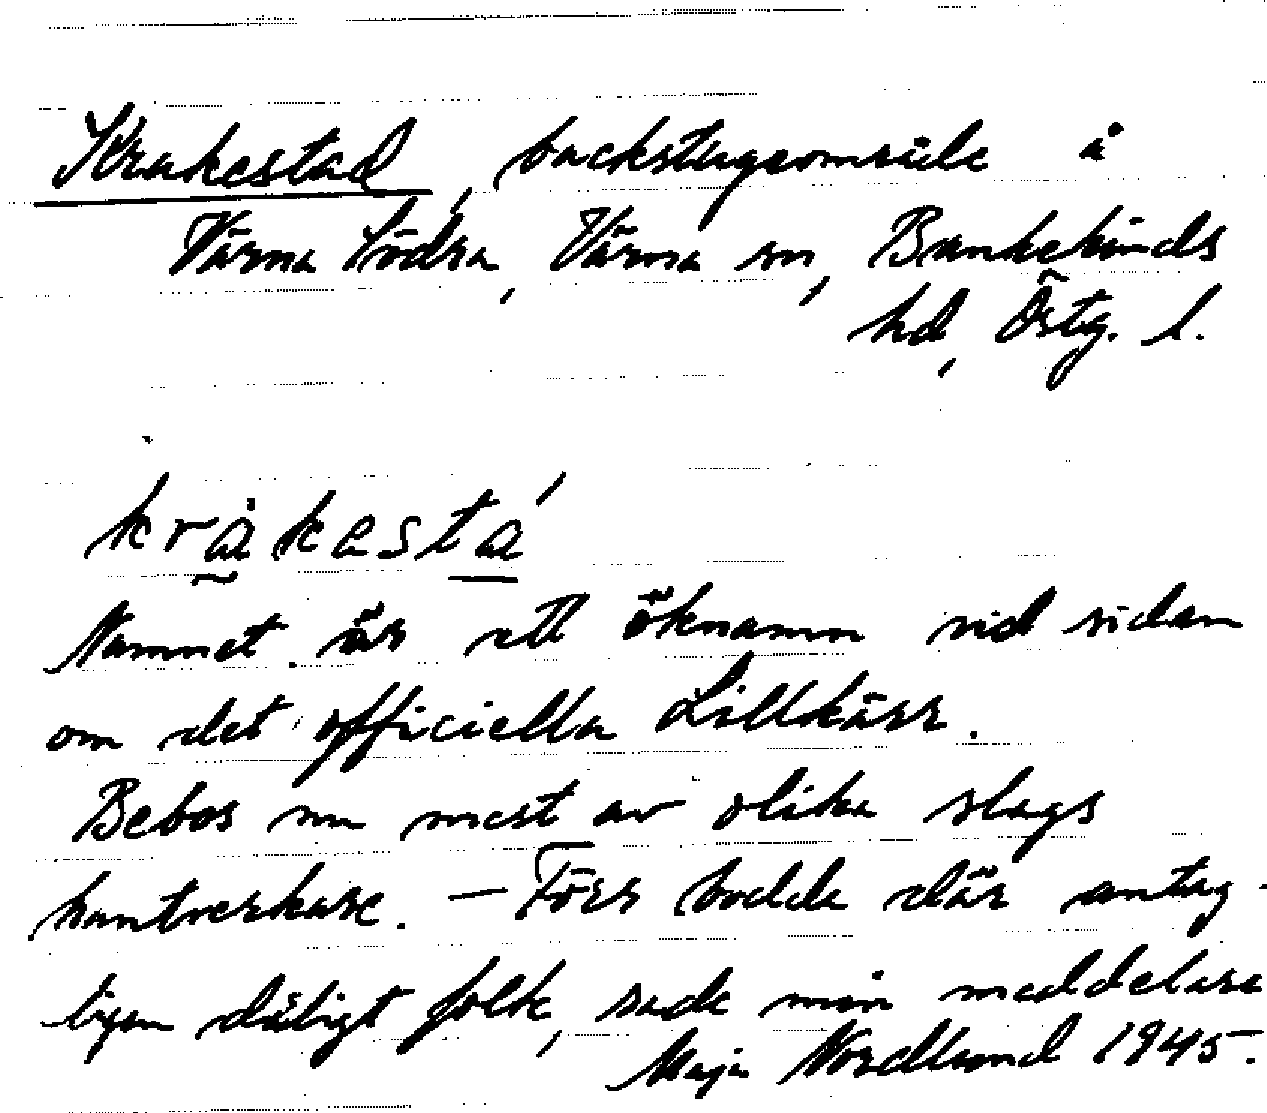 Krakestad, backstugeområde å
Värna Södra, Värna sn, Bankekinds
hd, Östg. l.
kråkestá
Namnet är ett öknamn vid sidan
om det officiella Lillkärr.
Bebos nu mest av olika slags
hantverkare. – Förr bodde där antag-
ligen dåligt folk, sade min meddelare
Maja Nordlund 1945.